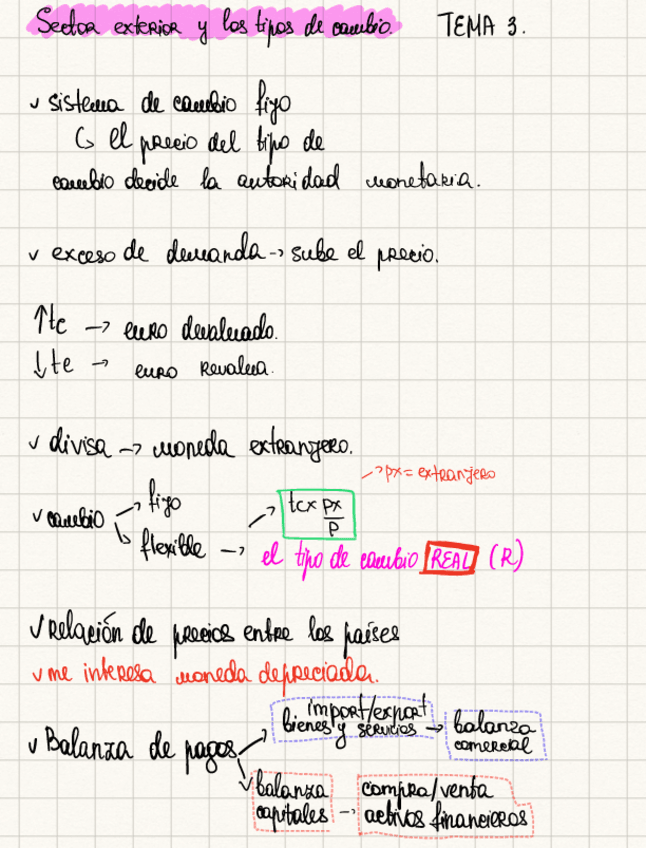 Sector exterior y los tipos de cambio. TEMA 3.
✓ sistema de cambio fijo
↳ el precio del tipo de
cambio decide la autoridad monetaria.
✓ exceso de demanda → sube el precio.
↑tc → euro devaluado.
↓tc → euro Revalua.
✓ divisa → moneda extranjero.
→ px = extranjero
✓ cambio → fijo
↳ flexible → tc x px/p
→ el tipo de cambio REAL (R)
✓ Relación de precios entre los países
✓ me interesa moneda depreciada.
✓ Balanza de pagos → import/export
bienes y servicios → balanza
comercial
↘ balanza
capitales → compra/venta
activos financieros